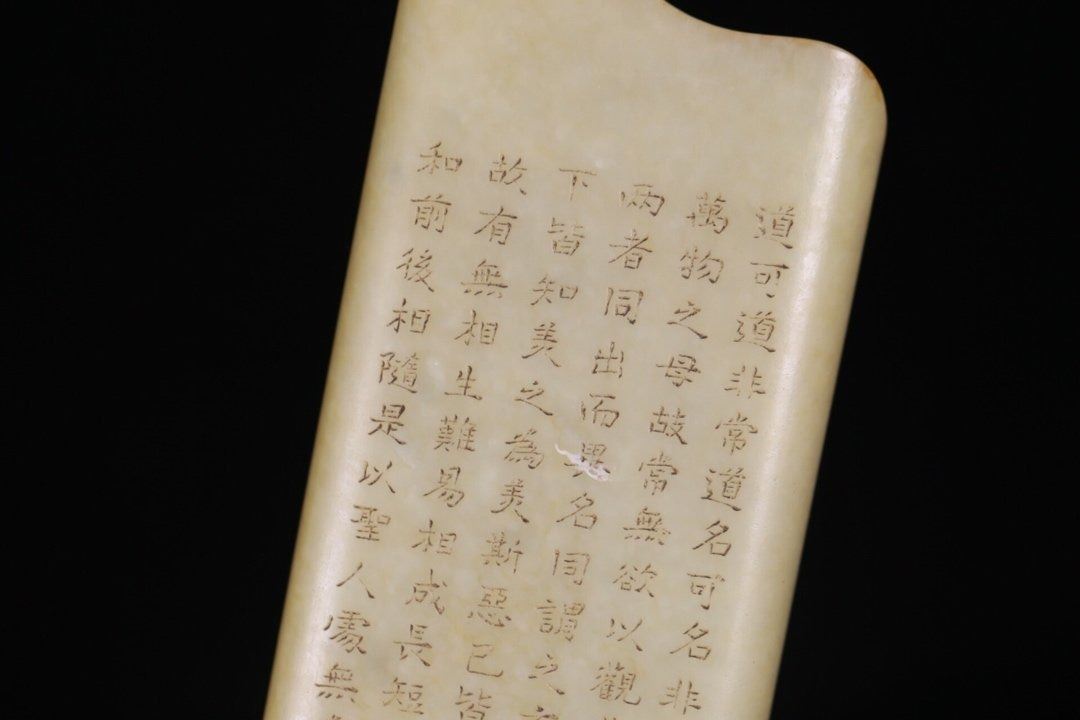 道可道非常道名可名非
萬物之母故常無欲以觀
两者同出而異名同謂之
下皆知美之為美斯惡已皆
故有無相生難易相成長短
和前後相隨是以聖人處無